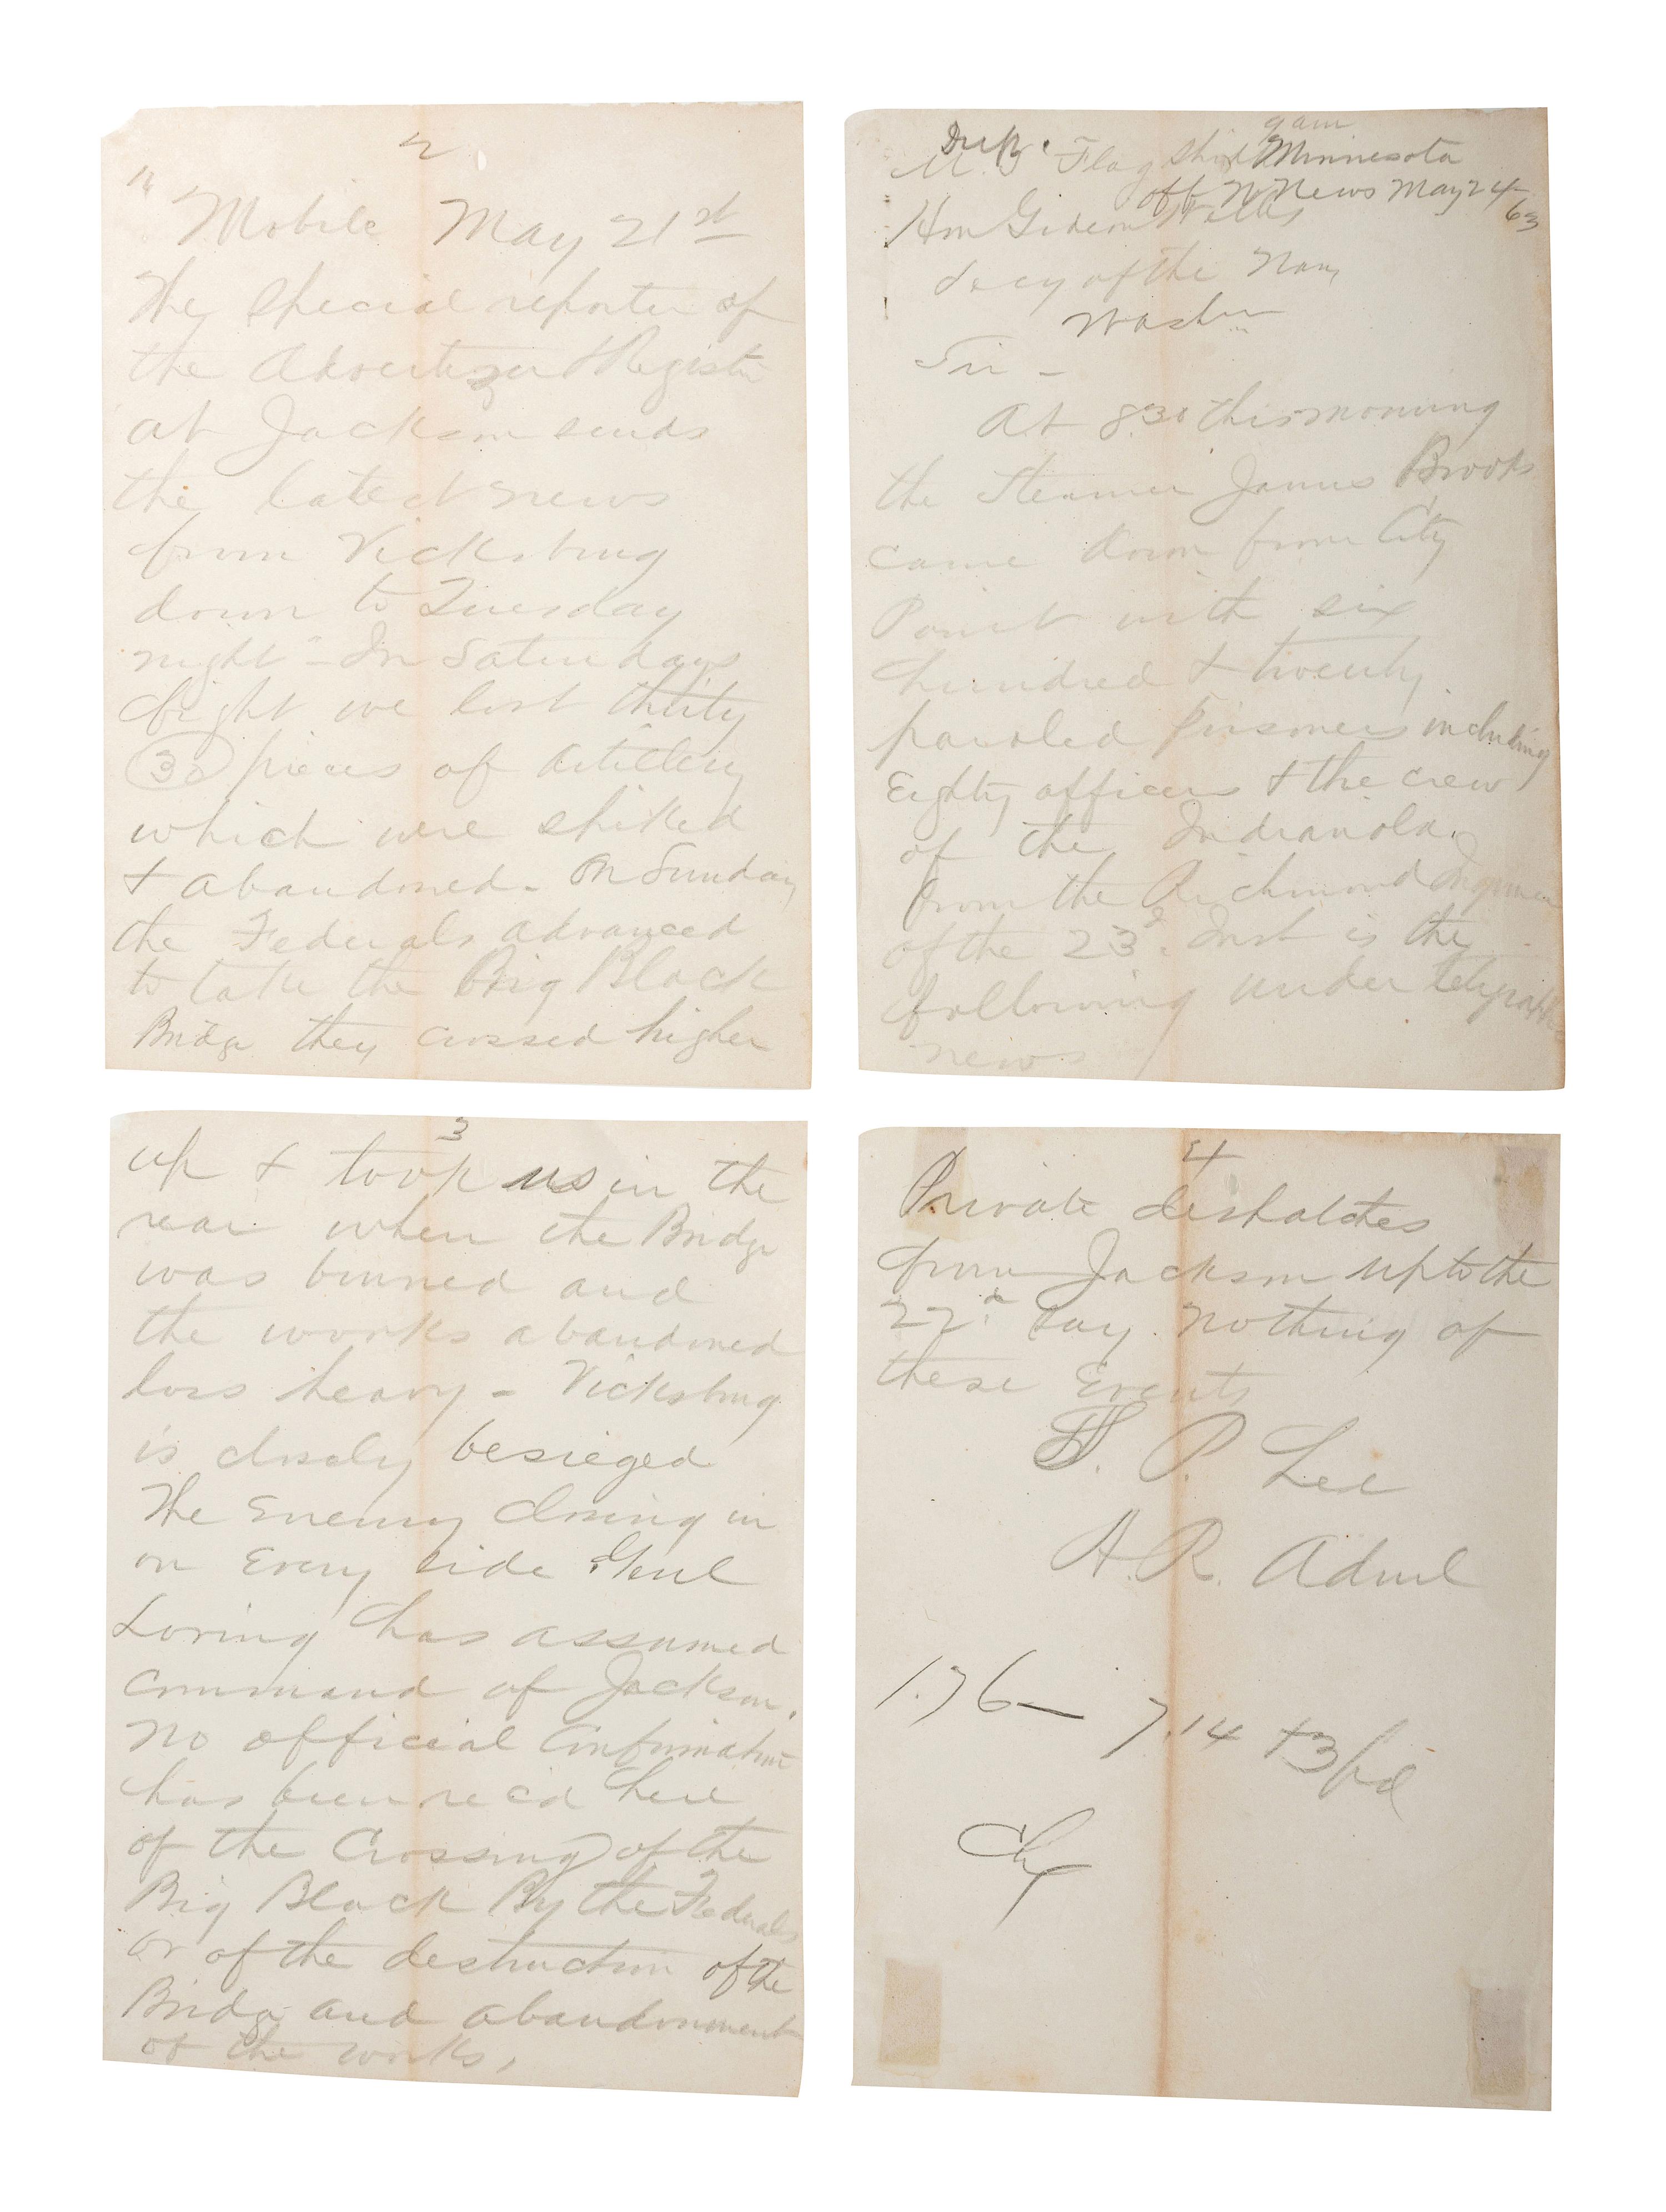 9 am
Dup. U.S Flag Ship Minnesota
off N News May 24
63
Hon Gideon Welles
Secy of the Navy
Washn
Sir -
At 8.30 this morning
the Steamer James Brooks
came down from City
Point with six
hundred & twenty
paroled Prisoners including
Eighty officers & the crew
of the Indianola.
from the Richmond Inquirer
of the 23d. Inst is the
following under telegraphic
news
2
"Mobile May 21st
The special reporter of
the Advertiser & Register
at Jackson sends
the latest news
from Vicksburg
down to Tuesday
night - In Saturdays
fight we lost thirty
(30) pieces of artillery
which were spiked
& abandoned - On Sunday
the Federals advanced
to take the Big Black
Bridge they crossed higher
3
up & took us in the
rear when the Bridge
was burned and
the works abandoned
loss heavy - Vicksburg
is closely besieged
The Enemy closing in
on Every side Genl
Loring has assumed
command of Jackson.
No official Confirmation
has been recd here
of the Crossing of the
Big Black By the Federals
or of the destruction of the
Bridge and abandonment
of the works.
4
Private despatches
from Jackson up to the
22d. say nothing of
these Events
S. P. Lee
A. R. Adml
176 - 7.14 + 3 pd